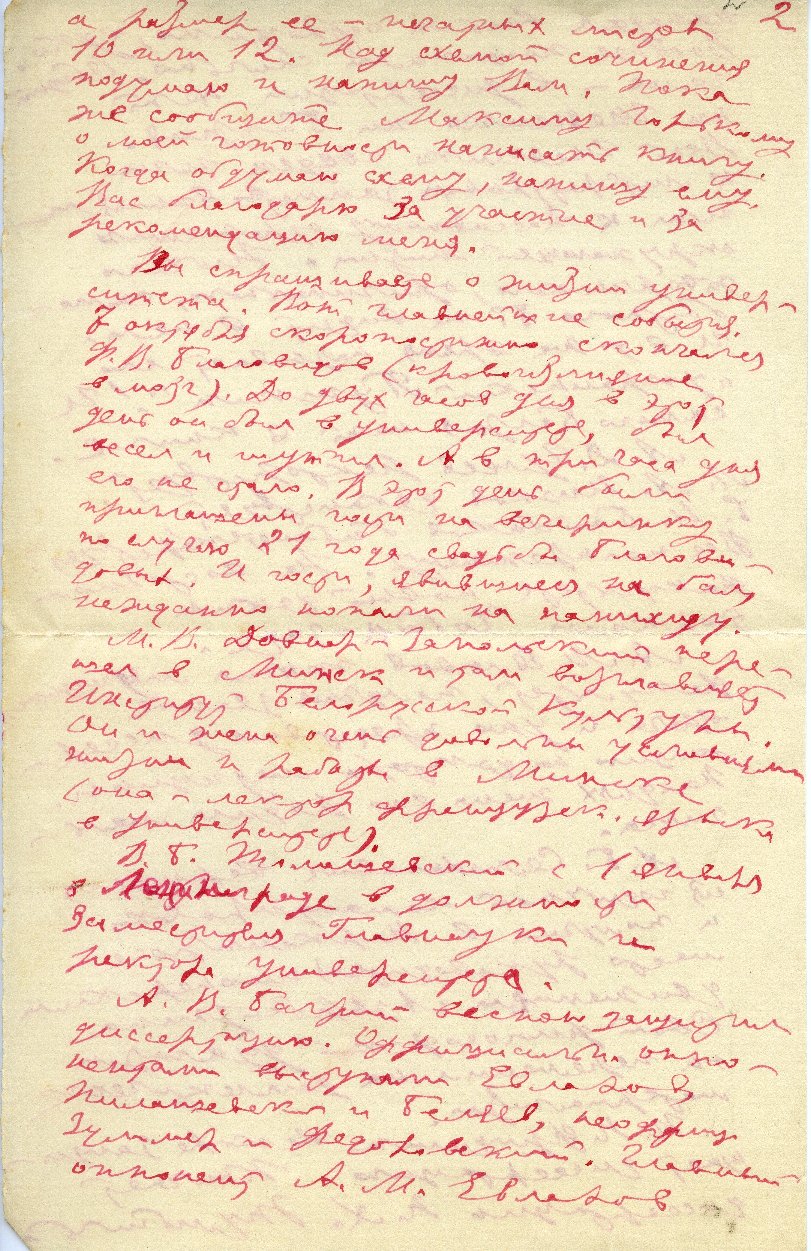 2
а размер ее – печатных листов
10 или 12. Над схемой сочинения
подумаю и напишу Вам. Пока
же сообщите Максиму Горькому
о моей готовности написать книгу.
Когда обдумаю схему, напишу ему.
Вас благодарю за участие и за
рекомендацию меня.
Вы спрашиваете о жизни универ-
ситета. Вот главнейшие события.
7 октября скоропостижно скончался
Ф. В. Благовидов (кровоизлияние
в мозг). До двух часов дня в этот
день он был в университете, был
весел и шутил. А в три часа дня
его не стало. В этот день были
приглашены гости на вечеринку
по случаю 21 года свадьбы Благови-
довых. И гости, явившиеся на бал,
нежданно попали на панихиду.
М. В. Довнар-Запольский пере-
шел в Минск и там возглавляет
Институт Белорусской Культуры.
Он и жена очень довольны условиями
жизни и работы в Минске
(она – лектор французск. языка
в университете).
В. Б. Томашевский с 1 января
в Ленинграде в должности
заместителя Главнауки и
ректора университета.
А. В. Багрий весною защитил
диссертацию. Оффициальн. оппо-
нентами выступали Евлахов,
и Беляев, неоффиц.
Зуммер и Федоровский. Главный
оппонент А. М. Евлахов